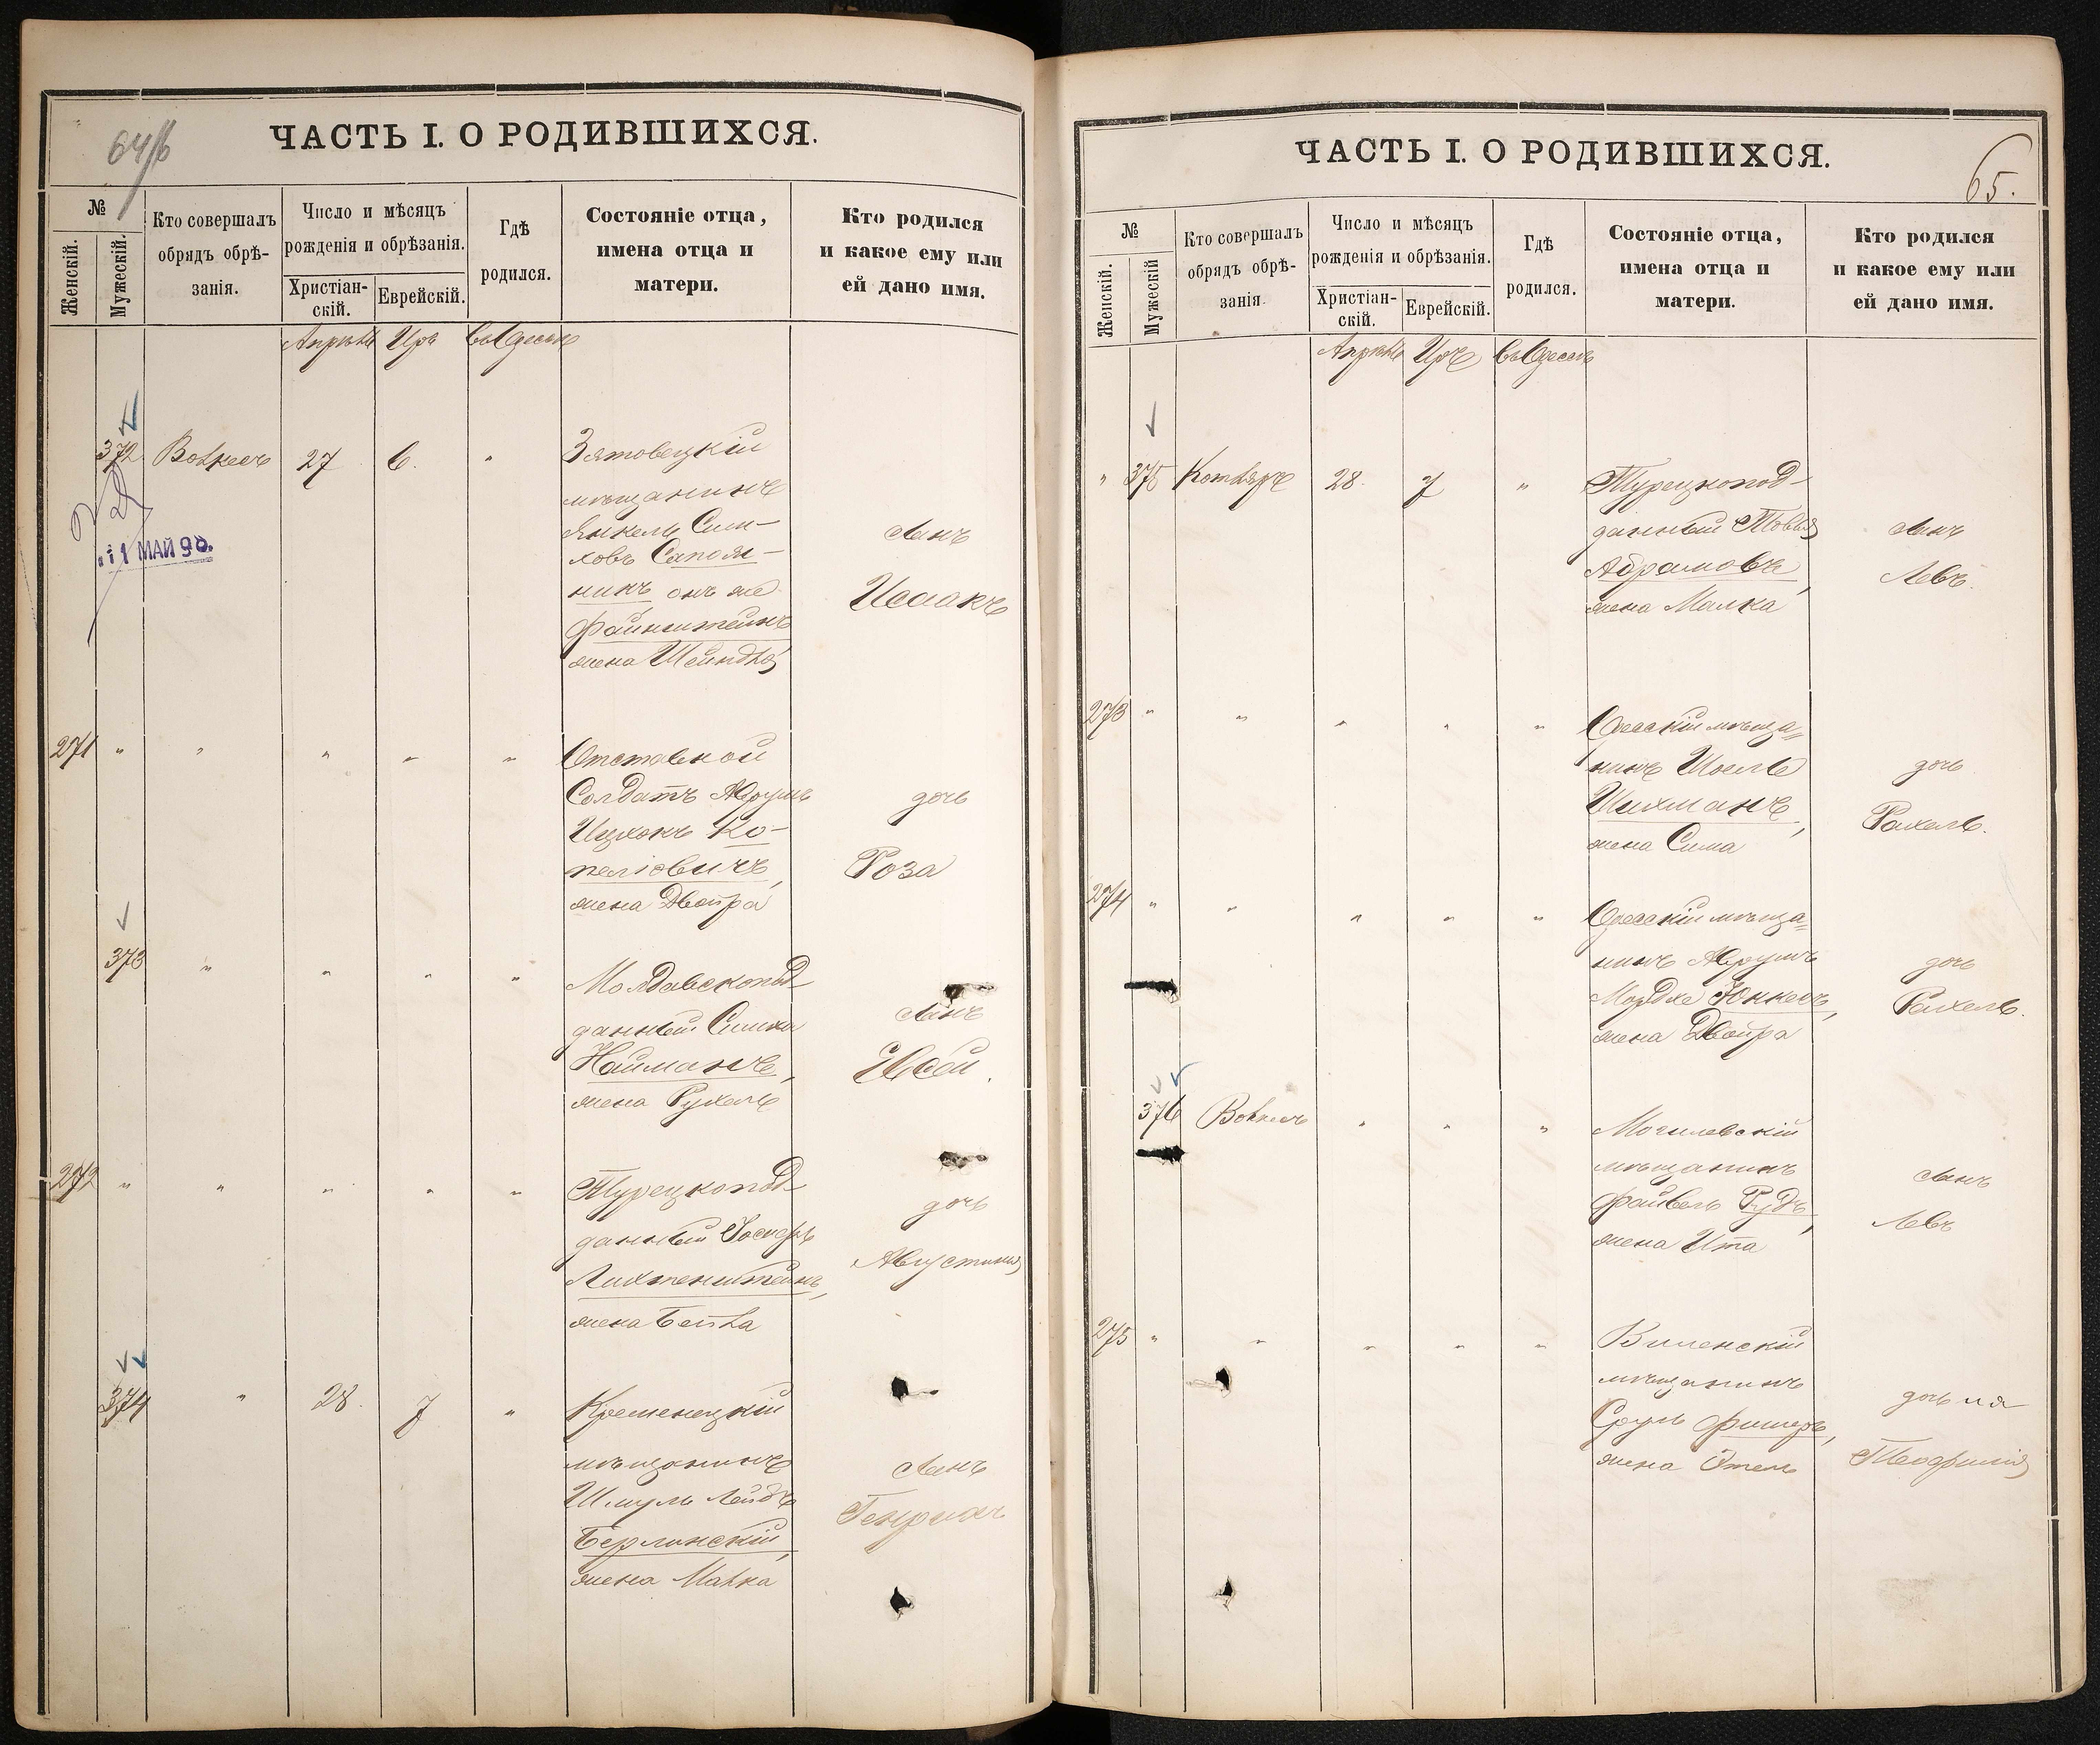 64/б
ЧАСТЬ I. О РОДИВШИХСЯ.
№
Женскій.
Мужескій.
Кто совершалъ
обрядъ обрѣ-
занія.
Число и мѣсяцъ
рожденія и обрѣзанія.
Христіан-
скій.
Еврейскій.
Гдѣ
родился.
Состояніе отца,
имена отца и
матери.
Кто родился
и какое ему или
ей дано имя.
Апрѣль Иръ въ Одессѣ
372 27 6 "
Зятовецкій
мѣщанинъ
Янкель Сим-
ховъ Сапож-
никъ онъ же
Файнштейнъ
жена Шейндля
сынъ
Исаакъ
11 МАЙ 90.
271 " " " " "
Отставной
Солдатъ Аврумъ
Ицхокъ Ко-
пеліовичъ,
жена Двойра
дочь
Роза
373 " " " "
Молдавскопод-
данный Симха
Найманъ,
жена Рухель
сынъ
272 " " " " "
Турецкопод-
данный
Лихтенштейнъ,
жена Бейла
дочь
Августина
374 " 28 7 "
Кременецкій
мѣщанинъ
Шмуль Лейбъ
Берлинскій,
жена Малка
сынъ
Генрихъ
65.
ЧАСТЬ I. О РОДИВШИХСЯ.
№
Женскій.
Мужескій
Кто совершалъ
обрядъ обрѣ-
занія.
Число и мѣсяцъ
рожденія и обрѣзанія.
Христіан-
скій.
Еврейскій.
Гдѣ
родился.
Состояніе отца,
имена отца и
матери.
Кто родился
и какое ему или
ей дано имя.
Апрѣль Иръ въ Одессѣ
" 375 Котляръ 28 7 "
Турецкопод-
данный Товія
Абрамовъ,
жена Малка
сынъ
Левъ.
273 " " " " "
Одесскій мѣща-
нинъ Шоелъ
Шихманъ,
жена Сима
дочь
Рахель.
274 " " " " "
Одесскій мѣща-
нинъ Аврумъ
Мордхе Юккесъ,
жена Двойра
дочь
Рахель.
376 " " "
Могилевскій
мѣщанинъ
Файвель Рудъ,
жена Ита
сынъ
Левъ
275 " " " " "
Виленскій
мѣщанинъ
Сруль Фишеръ,
жена Этель
дочь
Теофилія